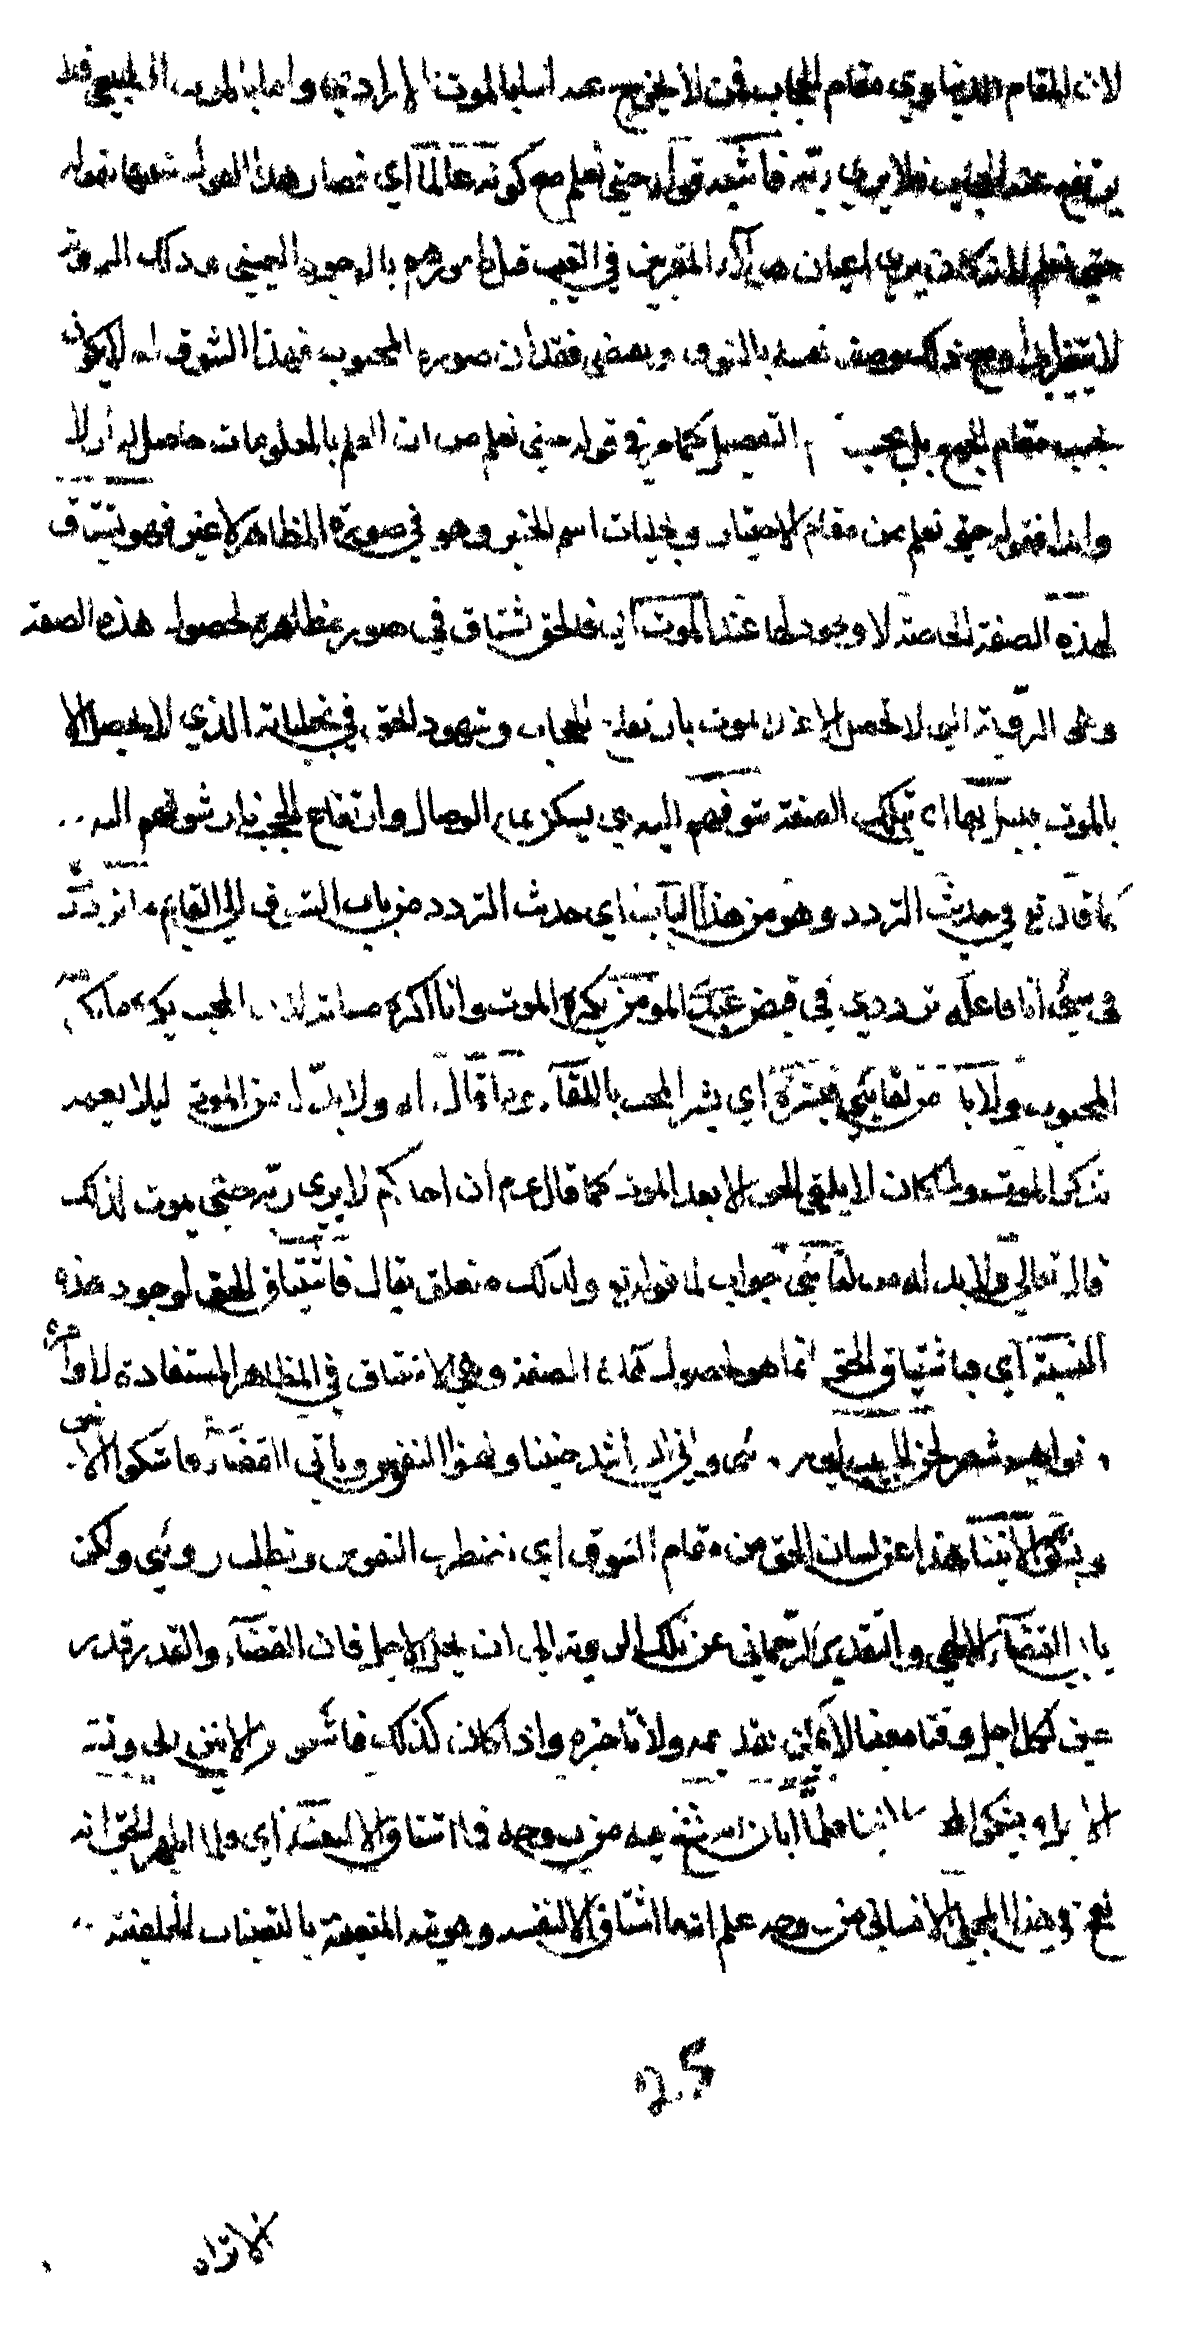 لان المقام الدنياوي مقام الحجاب فمن لا يخرج عنه اما بالموت الارادي واما بالموت الطبيعي فلا
يرتفع عنه الحجاب فلا يرى ربه فاشبه قوله حتى نعلم مع كونه عالما اي فصار هذا القول شبيها بقوله
حتى نعلم يرى اعيان هؤلاء المقربين في الغيب قبل ظهورهم بالوجود العيني وذلك الرؤية
لا يتغير ابدا ومع ذلك وصف نفسه بالشوق ويقتضي فقدان صورة المحبوب فهذا الشوق له لا يكون
بحسب مقام الجمع بل بحسب التفصيل كما مر في قوله حتى نعلم من ان العلم بالمعلومات حاصل له ازلا
وابدا فقوله حتى نعلم من مقام الاختبار وتجليات اسم الخبير وهو في صورة المظاهر لا غير فهو يشتاق
لهذه الصفة الخاصة لا وجود لها عند الموت اي فالحق يشتاق في صور مظاهره لحصول هذه الصفة
وهي الرؤية التي لا تحصل الا عند الموت بارتفاع الحجاب وشهود الحق في تجلياته الذي لا يحصل الا
بالموت فيبل بها اي بتلك الصفة شوقهم اليه اي يسكن بماء الوصال وارتفاع الحجب نار شوقهم اليه
كما قال تع في حديث التردد وهو من هذا الباب اي حديث التردد من باب الشوق الى اللقاء ما ترددت
في شيء انا فاعله ترددي في قبض عبدي المؤمن يكره الموت وانا اكره مساءته لان المحب يكره ما يكره
المحبوب ولا بد له من لقائي فبشره اي بشر المحب باللقاء وما قال له ولا بد له من الموت ليلا يغمه
بذكر الموت ولما كان لا يلقى الحق الا بعد الموت كما قال عم ان احدكم لا يرى ربه حتى يموت لذلك
قال تعالى ولا بد له من لقائي جواب لما قوله تع ولذلك متعلق بقال فاشتياق الحق لوجود هذه
النسبة اي فاشتياق الحق انما هو لحصول هذه الصفة وهي الاشتياق في المظاهر المستفادة
شعر يحن الحبيب الى رؤيتي واني اليه اشد حنينا وتهفو النفوس ويابى القضاء فاشكو الانين
ويشكو الانينا هذا عن لسان الحق من مقام الشوق اي تضطرب النفوس وتطلب رؤيتي ولكن
يابى القضاء الالهي والتقدير الرحماني عن تلك الرؤية الى ان يحل الاجل فان القضاء والقدر قدر
عين لكل اجل وقتا معينا لا يمكن تقديمه ولا تاخيره واذا كان كذلك فاشكو الانين الى رؤيته
ويشكو الانينا فلما ابان انه نفخ فيه من روحه فما اشتاق الا لنفسه اي ولما اظهر الحق انه
نفخ في هذا المجلى الانساني من روحه علم انه ما اشتاق الا لنفسه وهويته المتعينة بالتعينات الخلقية
25
الا تراه